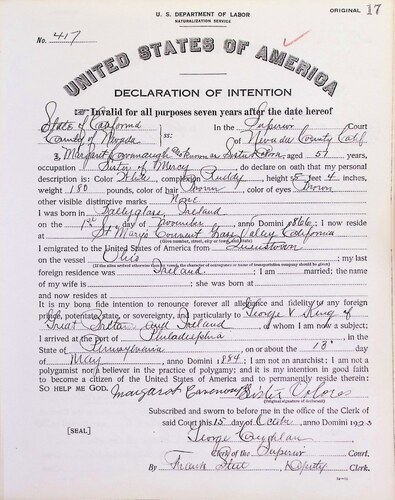 U. S. DEPARTMENT OF LABOR
NATURALIZATION SERVICE
ORIGINAL 17
No. 417
UNITED STATES OF AMERICA
DECLARATION OF INTENTION
☞ Invalid for all purposes seven years after the date hereof
State of California
In the Superior Court
County of Nevada ss:
Of Nevada County Calif
I, Margaret Cavanaugh known as Sister Dolores, aged 57 years,
occupation Sister of Mercy, do declare on oath that my personal
description is: Color White, complexion Ruddy, height 5 feet 4 inches,
weight 180 pounds, color of hair Brown, color of eyes Brown
other visible distinctive marks None
I was born in Ireland
on the 1st day of November, anno Domini 1866; I now reside
at St Marys Convent Grass Valley California
(Give number, street, city or town, and State.)
I emigrated to the United States of America from Queenstown
on the vessel Ohio; my last
(If the alien arrived otherwise than by vessel, the character of conveyance or name of transportation company should be given.)
foreign residence was Ireland; I am married; the name
of my wife is; she was born at
and now resides at
It is my bona fide intention to renounce forever all allegiance and fidelity to any foreign
prince, potentate, state, or sovereignty, and particularly to George V King of
Great Britain and Ireland, of whom I am now a subject;
I arrived at the port of Philadelphia, in the
State of Pennsylvania, on or about the 13 day
of May, anno Domini 1884; I am not an anarchist; I am not a
polygamist nor a believer in the practice of polygamy; and it is my intention in good faith
to become a citizen of the United States of America and to permanently reside therein:
SO HELP ME GOD.
Margaret Cavanaugh Sister Dolores
(Original signature of declarant.)
Subscribed and sworn to before me in the office of the Clerk of
said Court this 15 day of October, anno Domini 1923
[SEAL]
George Coughlan
Clerk of the Superior Court.
By Frank Steel, Deputy Clerk.